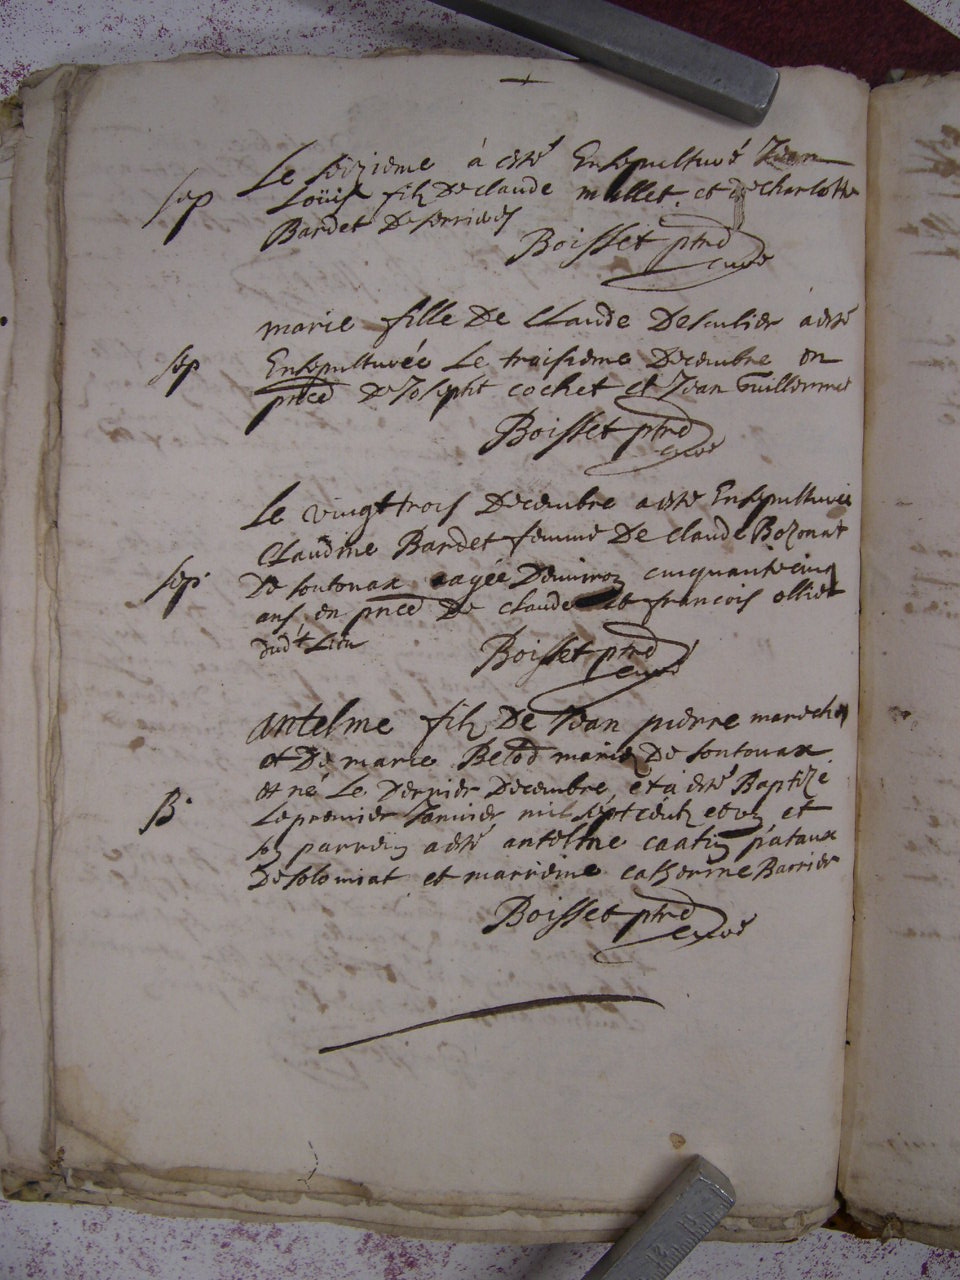 Le seizieme à esté Ensepulturé Jean
sep Loüis filz De claude mallet et de charlotte
Bardet De serrieres
Boisset ptre
curé
marie fille De claude Desculier a esté
sep Ensepulturée Le troisieme Decembre en
pnce De Joseph cochet et Jean Guillermet
Boisset ptre
curé
Le vingt trois Decembre a esté Ensepulturée
claudine Bardet femme De claude Bozonat
sep De soutonax aagée Denviron cinquante cinq
ans, en pnce De claude et francois ollier
dudt Lieu
Boisset ptre
curé
antelme filz De Jean pierre
et De marie mariez De soutonax
et né Le Dernier Decembre, et à esté Baptizé
B. Le premier Janvier mil sept centz et et
so parrein a esté antelme
De solomiat et marreine catherine Barrier
Boisset ptre
curé